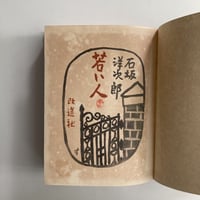 石坂
洋次郎
若い人
改造社